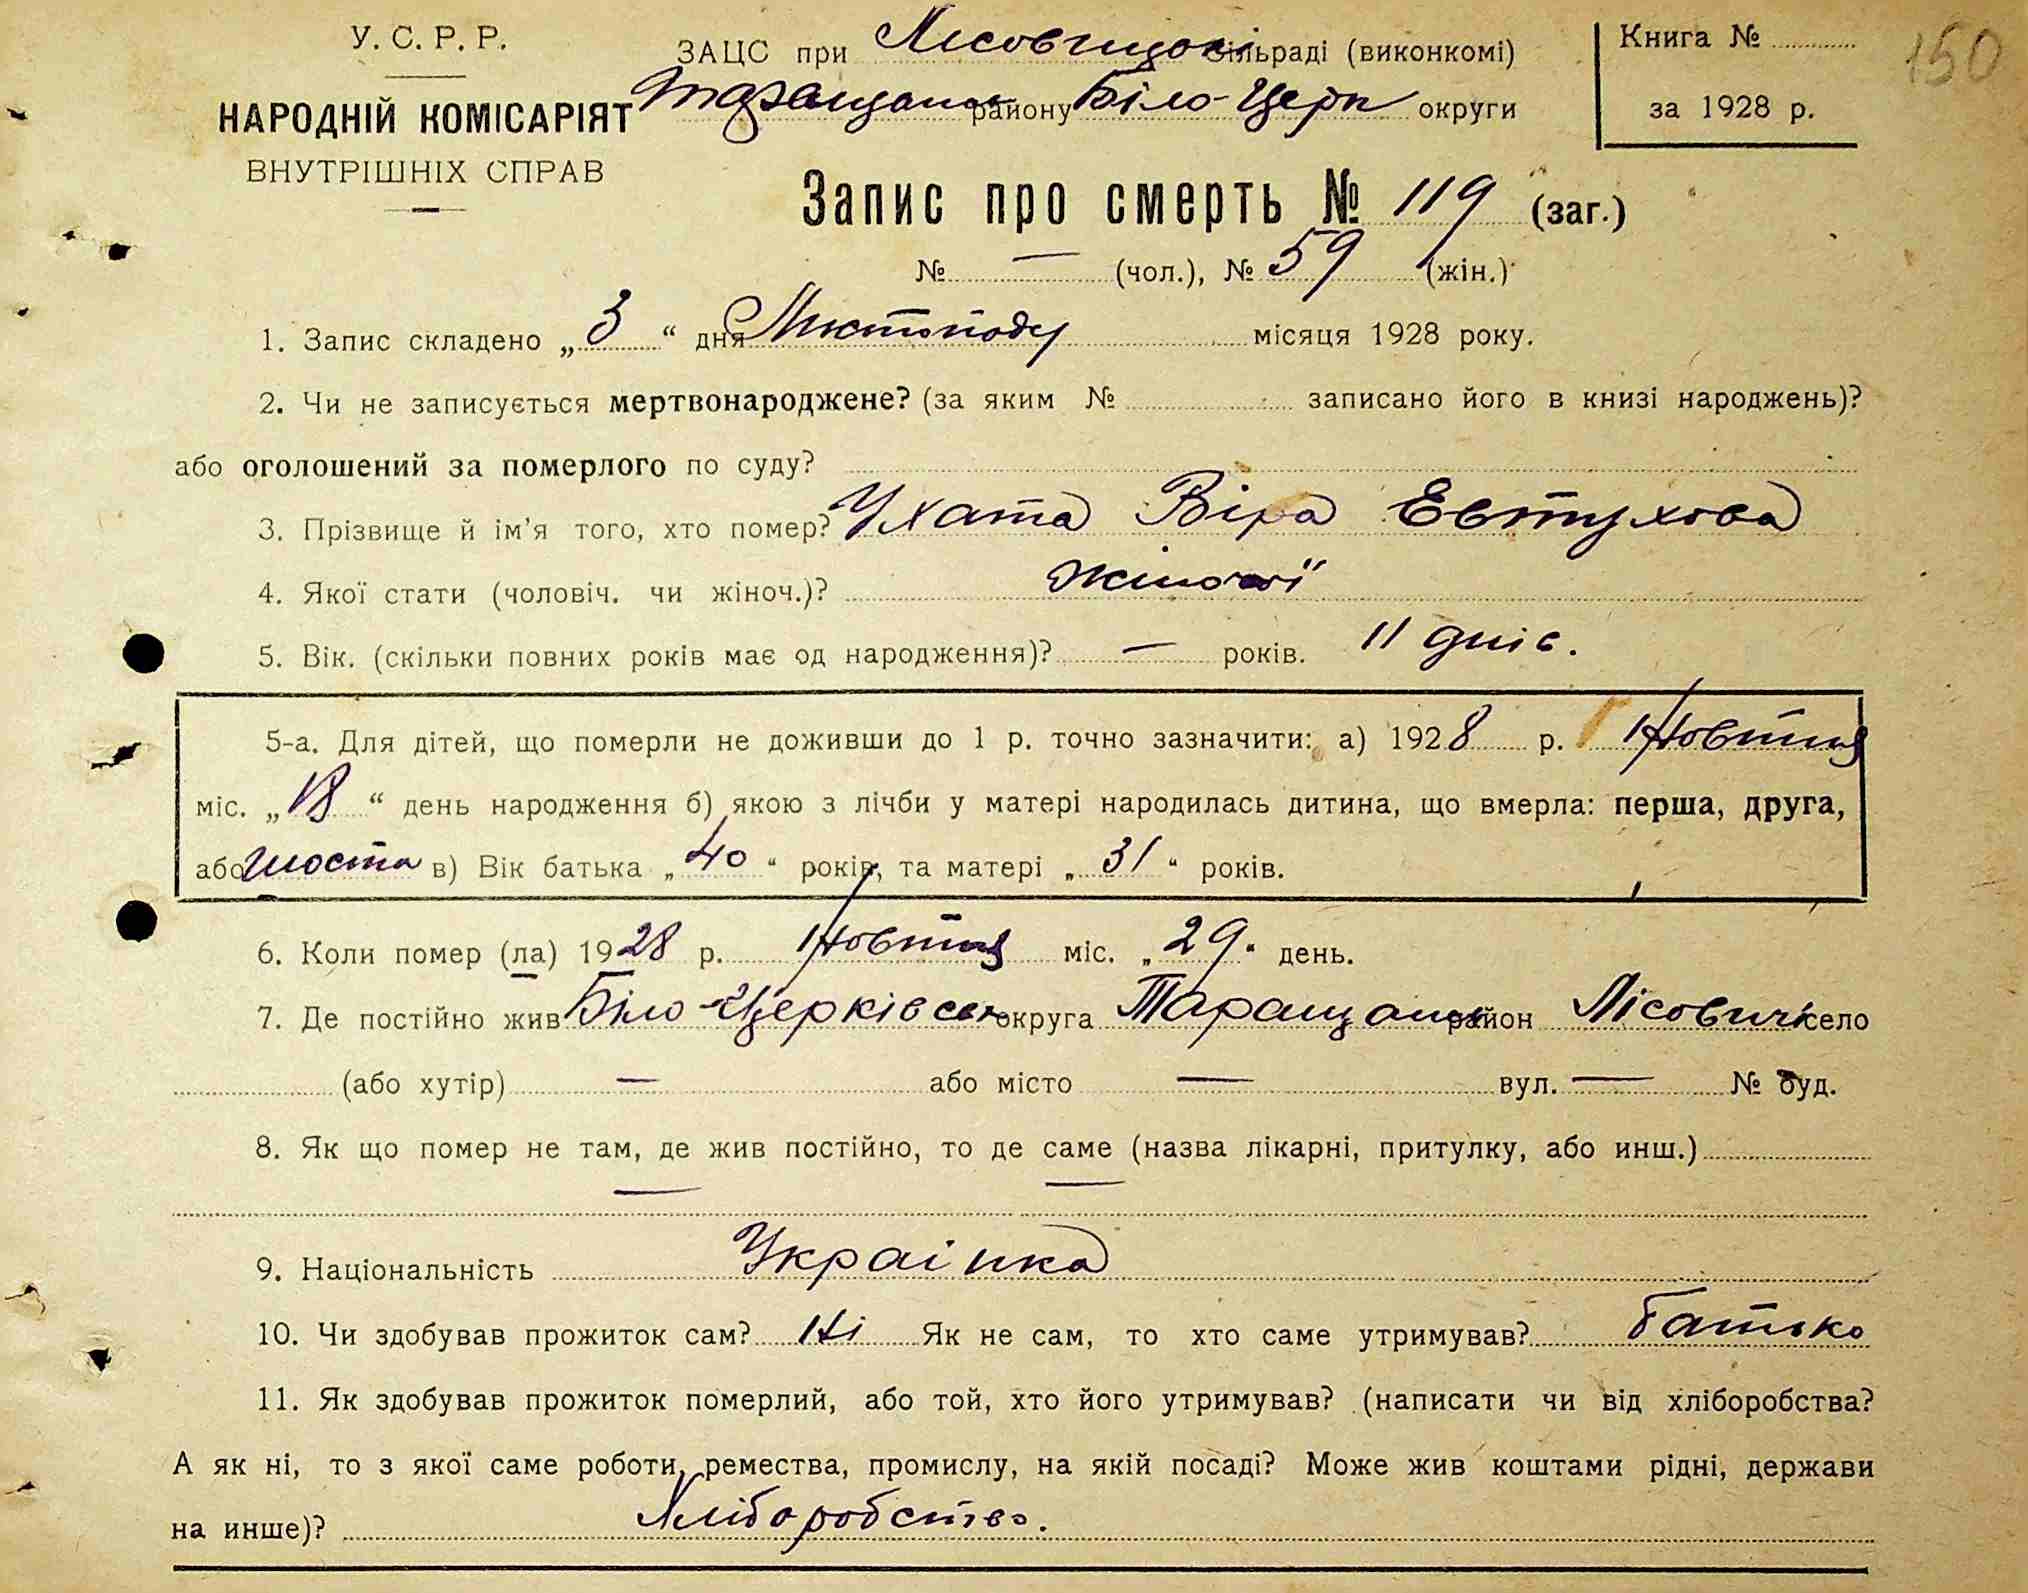 У. С. Р. Р.
НАРОДНІЙ КОМІСАРІЯТ
ВНУТРІШНІХ СПРАВ
ЗАЦС при Лісовицькі сільраді (виконкомі)
Таращанськ району Біло-Церк округи
Книга №
за 1928 р.
150
Запис про смерть № 119 (заг.)
№ — (чол.), № 59 (жін.)
1. Запис складено „ 3 “ дня Листопаду місяця 1928 року.
2. Чи не записується мертвонароджене? (за яким № записано його в книзі народжень)?
або оголошений за померлого по суду?
3. Прізвище й ім’я того, хто помер? Ухата Віра Евтухова
4. Якої стати (чоловіч. чи жіноч.)? жіночої
5. Вік. (скільки повних років має од народження)? — років. 11 днів.
5-а. Для дітей, що померли не доживши до 1 р. точно зазначити: а) 1928 р. Жовтня
міс. „ 18 “ день народження б) якою з лічби у матері народилась дитина, що вмерла: перша, друга,
або шоста в) Вік батька „ 40 “ років, та матері „ 31 “ років.
6. Коли помер (ла) 1928 р. Жовтня міс. „ 29 “ день.
7. Де постійно жив Біло-Церківськ округа Таращанськ район Лісовичі село
(або хутір) — або місто — вул. — № буд.
8. Як що помер не там, де жив постійно, то де саме (назва лікарні, притулку, або инш.)
— —
9. Національність Украінка
10. Чи здобував прожиток сам? Ні Як не сам, то хто саме утримував? батько
11. Як здобував прожиток померлий, або той, хто його утримував? (написати чи від хліборобства?
А як ні, то з якої саме роботи, ремества, промислу, на якій посаді? Може жив коштами рідні, держави
на инше)? Хліборобство.